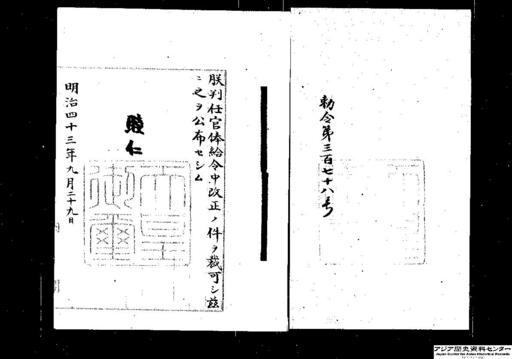 勅令第三百七十八号
朕判任官俸給令中改正ノ件ヲ裁可シ茲
ニ之ヲ公布セシム
睦仁
天皇御璽
明治四十三年九月二十九日
アジア歴史資料センター
Japan Center for Asian Historical Records